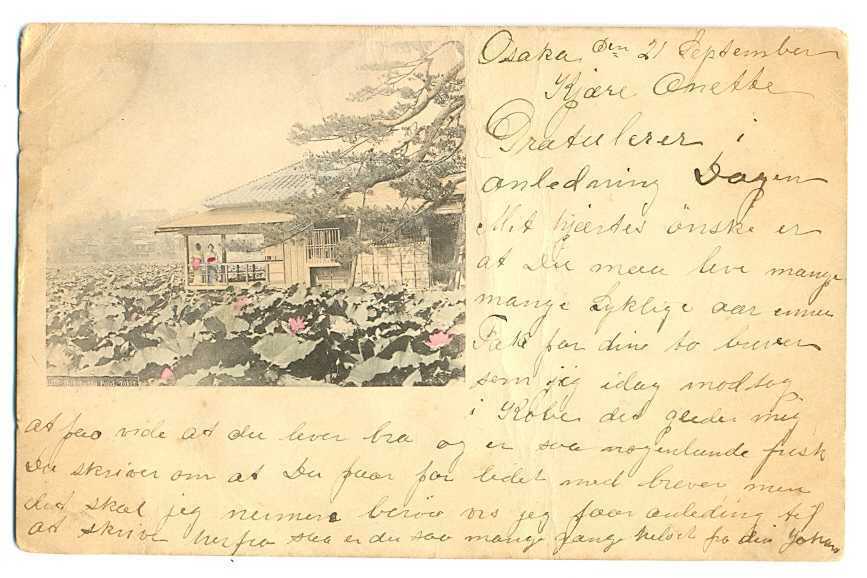 Osaka den 21 September
Kjære Onette
Gratulerer i
anledning Dagen
Mit hjertes önske er
at Du maa leve mange
mange Lyklige aar ennu
Tak for dine to brever
som jeg idag modtog
i Kobe det gleder mig
at faa vide at du lever bra og er saa nogenlunde frisk
Du skriver om at Du faar for lidet med brever men
det skal jeg nermere vis jeg faar anledning til
at skrive herfra saa er du saa mange gange helset fra din Johan